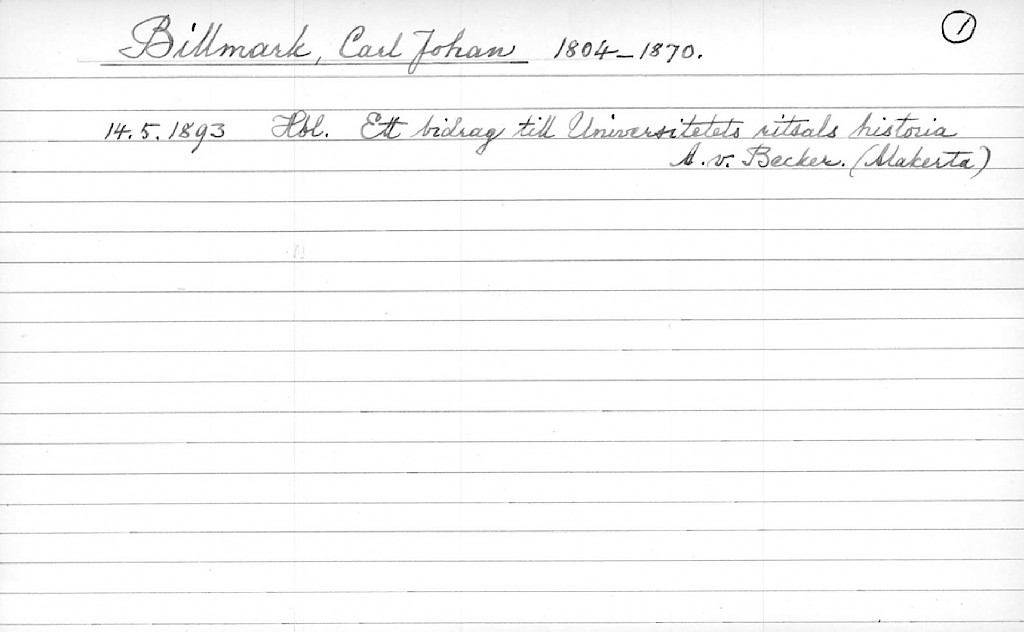 Billmark, Carl Johan 1804-1870. 1
14.5.1893 Hbl. Ett bidrag till Universitetets ritsals historia
A. v. Becker. (Makerta)